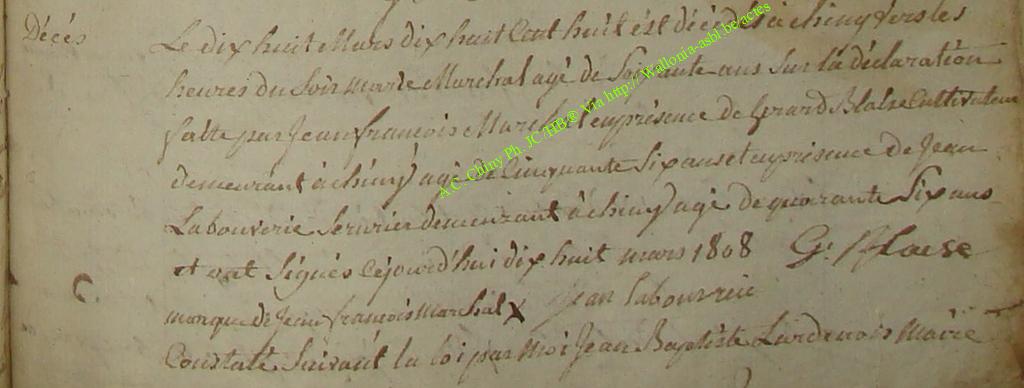 Décés
Le dix huit Mars dix huit Cent huit est décédé à chiny vers les
heures du Soir marie Marchal agé de Soixante ans Sur la déclaration
faite par Jean françois Marchal en présence de Gerard Blaise Cultivateur
demeurant à chiny agé de Cinquante Six ans et en présence de Jean
Labouverie Serurier demeurant à chiny agé de quarante Six ans
et ont Signés Cejourd'hui dix huit mars 1808 G: Blaise
marque de Jean françois Marchal X jean labouverie
Constaté Suivant la loi par Moi Jean Baptiste Lardenois Maire
A.C. Chiny Ph. JC/HB® Via http://Wallonia-asbl.be/actes